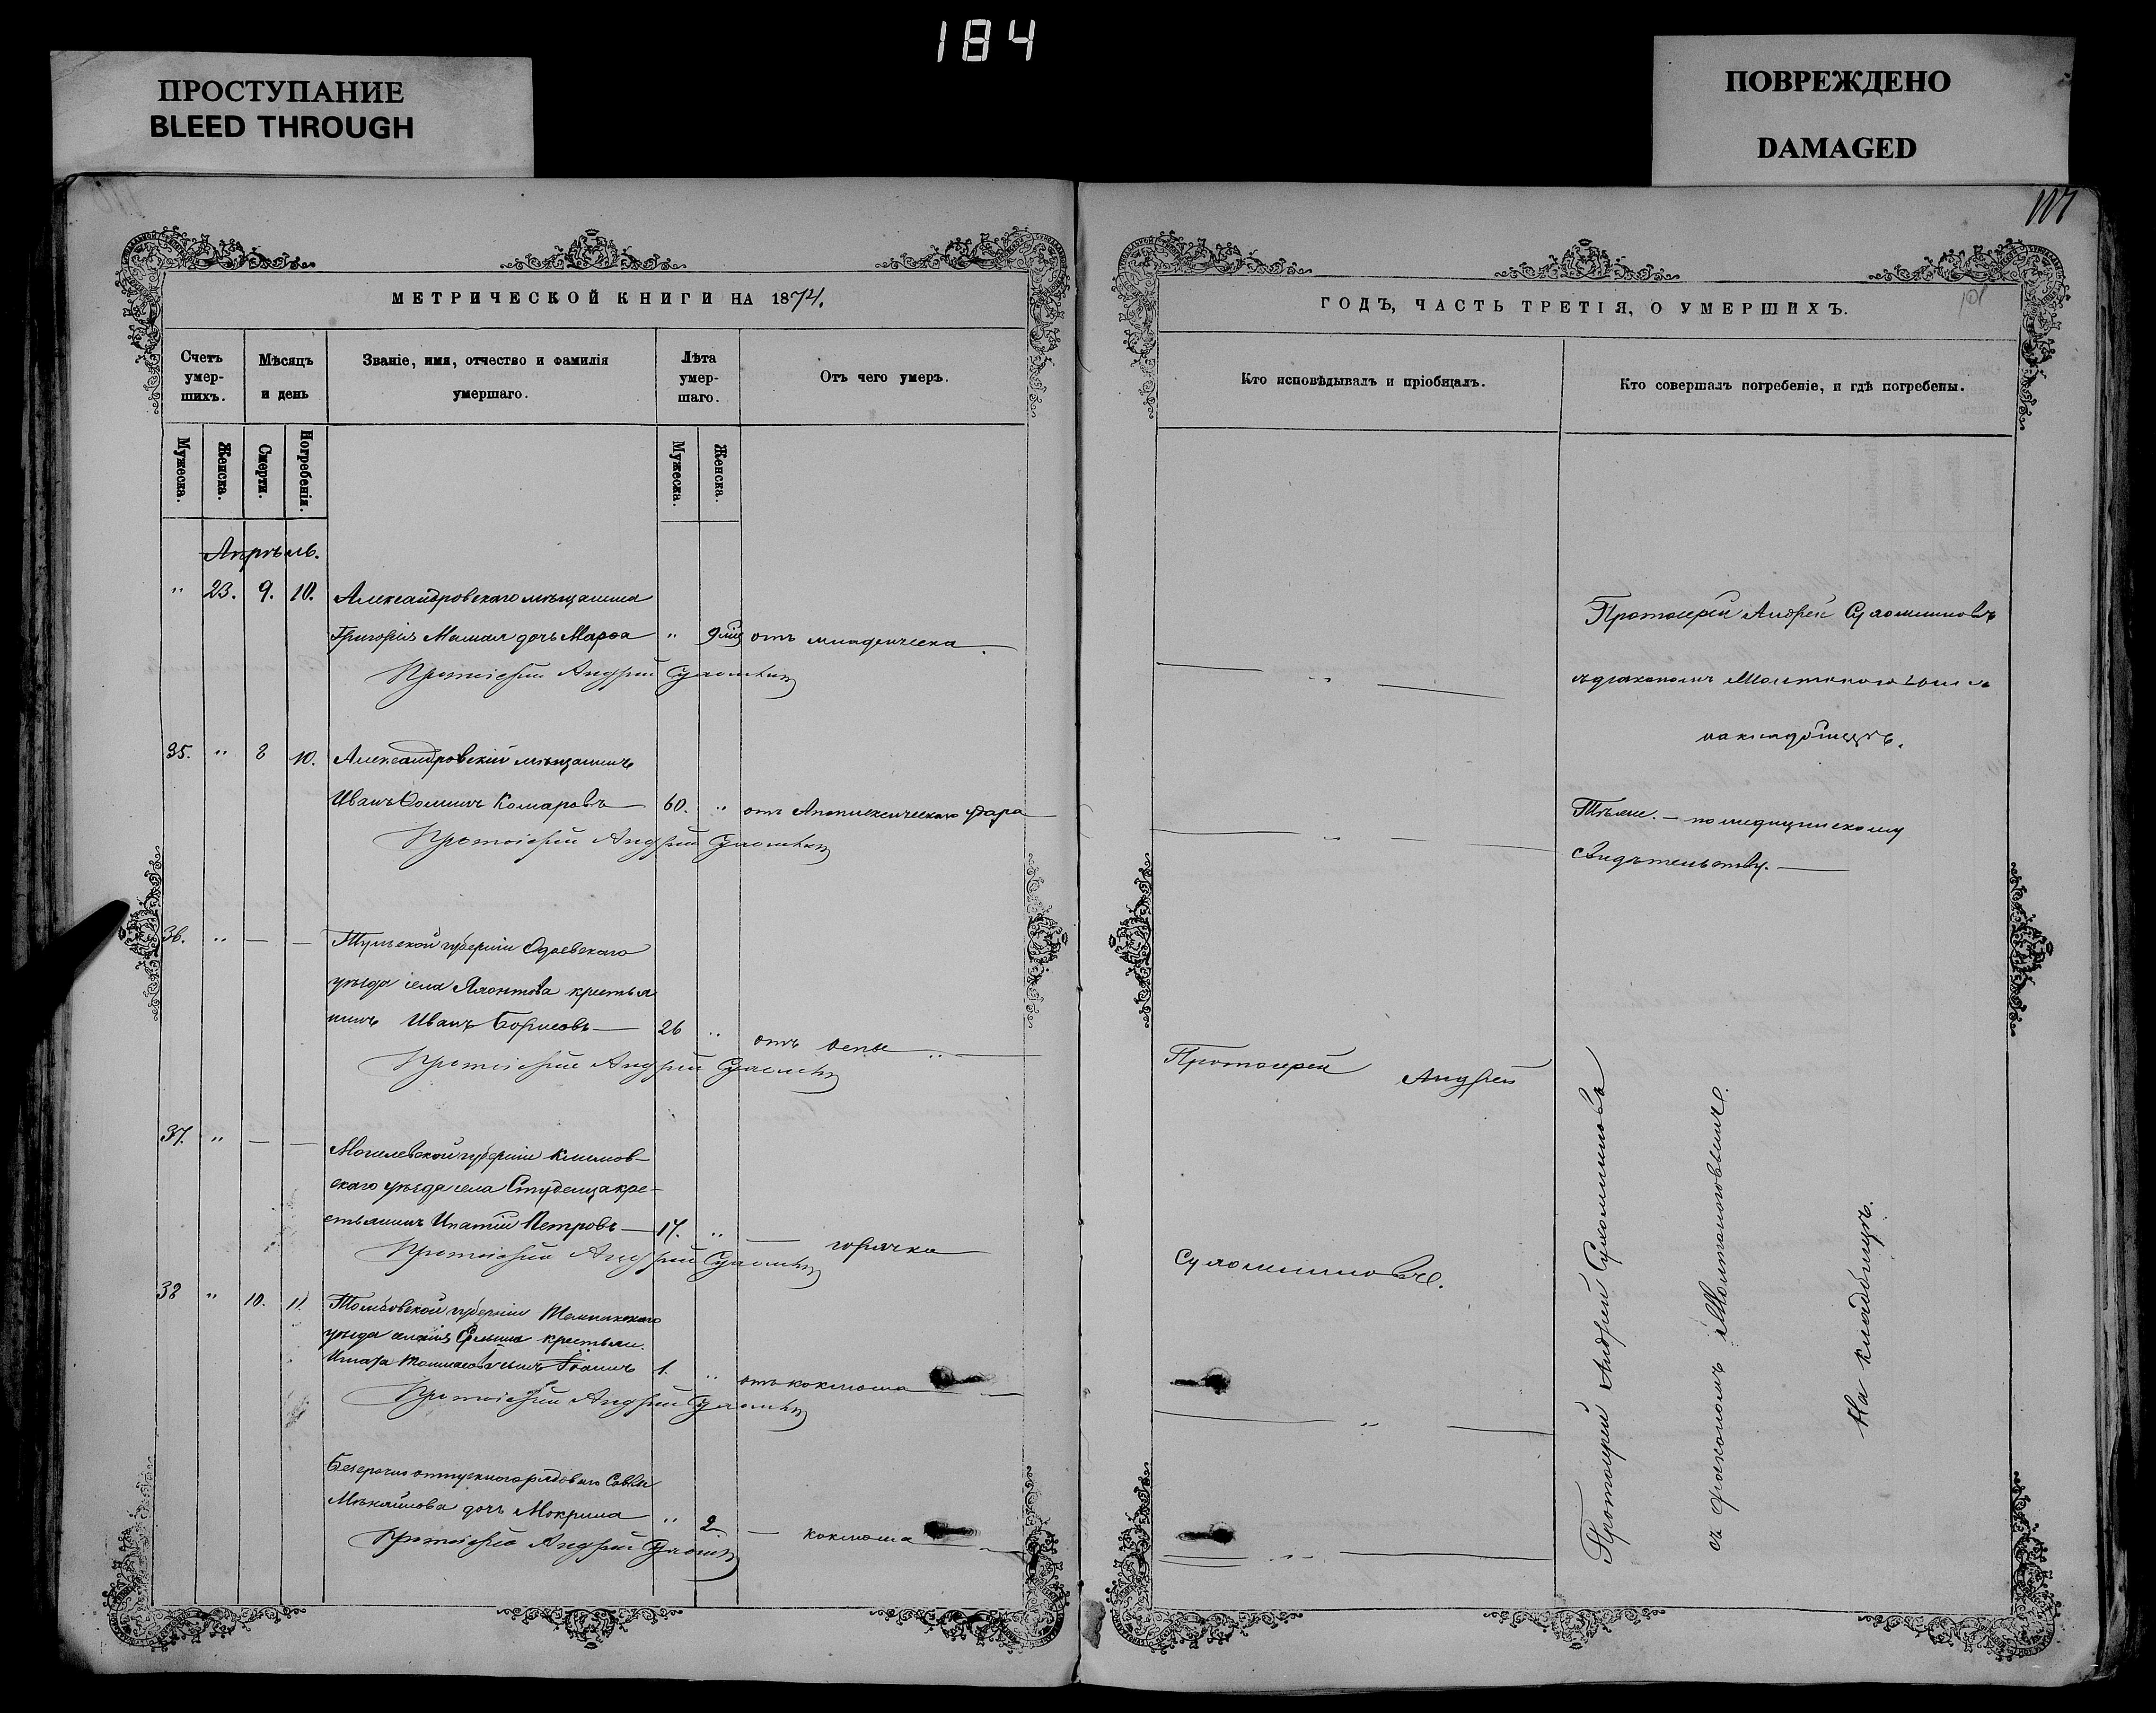 184
ПРОСТУПАНИЕ
BLEED THROUGH
ПОВРЕЖДЕНО
DAMAGED
107
101
МЕТРИЧЕСКОЙ КНИГИ НА 1874.
Счетъ умер- шихъ.
Мѣсяцъ и день
Званіе, имя, отчество и фамилія умершаго.
Лѣта умер- шаго.
Отъ чего умеръ.
Мужеска.
Женска.
Смерти.
Погребенія.
Мужеска.
Женска.
Апрѣль.
" 23. 9. 10. Александровскаго мѣщанина
Григорія дочь Марѳа " 9 міц отъ младенческа
Протоіерей Андрей Сухомлин
35. " 8 10. Александровскій мѣщанинъ
Иванъ Ѳоминъ Комаровъ 60. " отъ Апоплексическаго удара
Протоіерей Андрей Сухомлин
36. " — — Тульской губерніи Одоевскаго
уѣзда села крестья
нинъ Иванъ Борисовъ 26 " отъ оспы "
Протоіерей Андрей Сухомлин
37. " — — Могилевской губерніи Климов-
скаго уѣзда села Студенца кре-
стьянинъ Ипатій Петровъ 17. " — горячка
Протоіерей Андрей Сухомлин
38 " 10. 11. Тамбовской губерніи
уѣзда крестьян.
сынъ Іоаннъ 1. " отъ коклюша
Протоіерей Андрей Сухомлин
Безсрочно отпускнаго рядоваго Саввы
дочь Мокрина " 2 — коклюша
Протоіерей Андрей Сухомлин
ГОДЪ, ЧАСТЬ ТРЕТІЯ, О УМЕРШИХЪ.
Кто исповѣдывалъ и пріобщалъ.
Кто совершалъ погребеніе, и гдѣ погребены.
Протоіерей Андрей Сухомлиновъ
съ діакономъ
на кладбищѣ.
Тѣмже. — по медицинскому
свидѣтельству.
Протоіерей Андрей
Сухомлиновъ.
Протоіерей Андрей Сухомлиновъ
съ діакономъ Молтановымъ.
На кладбищѣ.